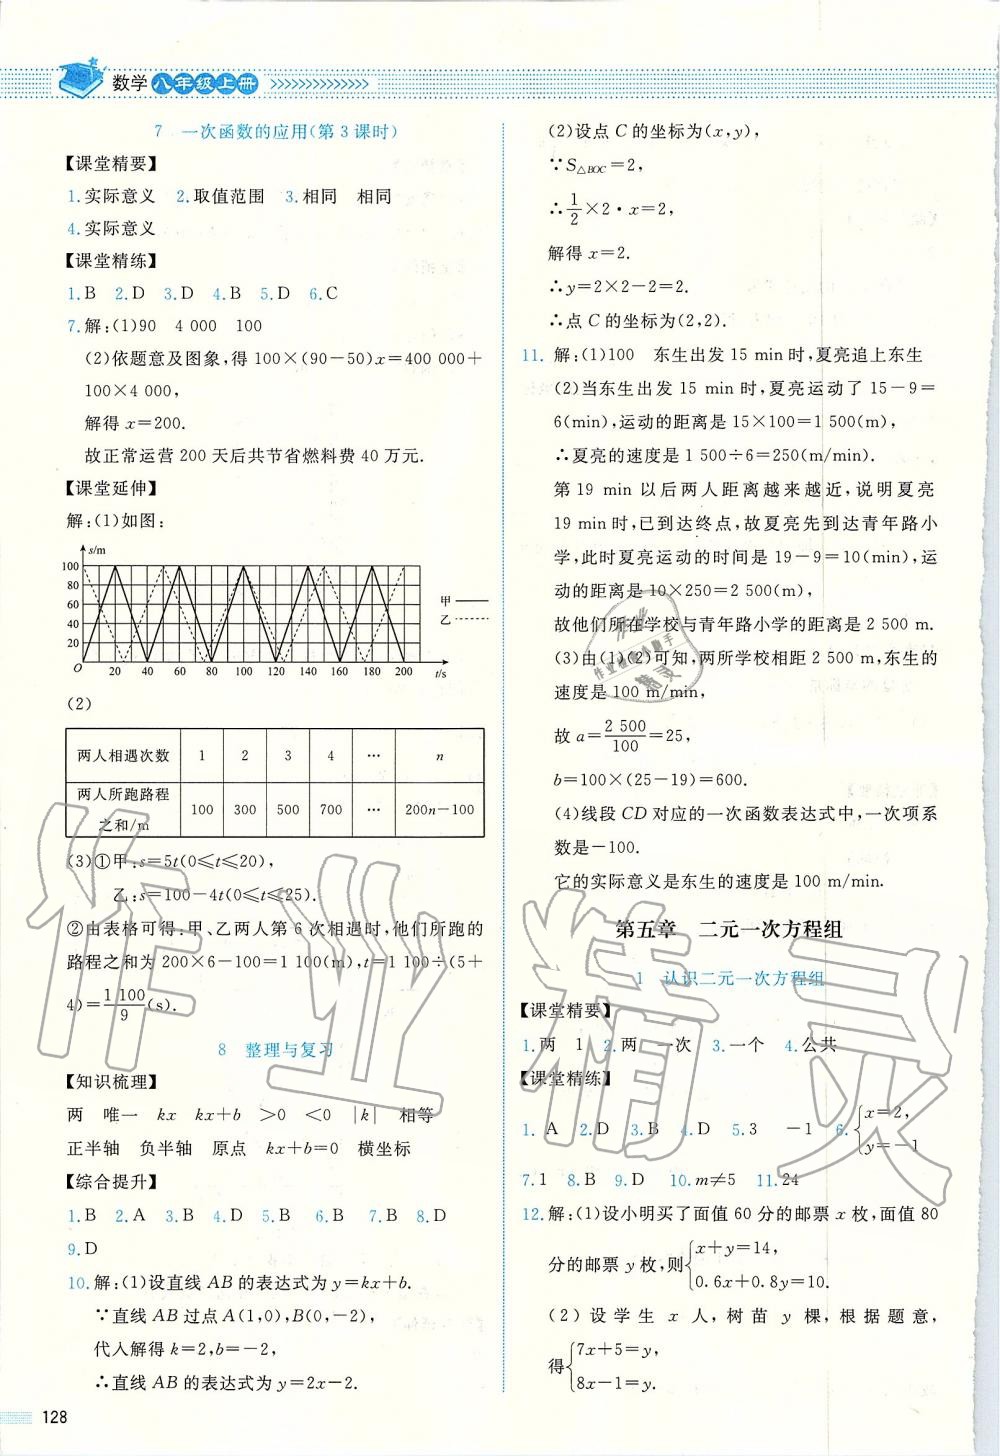 数学八年级上册
7 一次函数的应用(第3课时)
【课堂精要】
1.实际意义 2.取值范围 3.相同 相同
4.实际意义
【课堂精练】
1.B 2.D 3.D 4.B 5.D 6.C
7.解:(1)90 4 000 100
(2)依题意及图象,得 100×(90-50)x=400 000+
100×4 000,
解得 x=200.
故正常运营 200 天后共节省燃料费 40 万元.
【课堂延伸】
解:(1)如图:
s/m
100
80
60
40
20
O 20 40 60 80 100 120 140 160 180 200 t/s
甲
乙
(2)
两人相遇次数 1 2 3 4 … n
两人所跑路程
之和/m 100 300 500 700 … 200n-100
(3)①甲:s=5t(0≤t≤20),
乙:s=100-4t(0≤t≤25).
②由表格可得:甲、乙两人第 6 次相遇时,他们所跑的
路程之和为 200×6-100=1 100(m),t=1 100÷(5+
4)=1 100/9(s).
8 整理与复习
【知识梳理】
两 唯一 kx kx+b >0 <0 |k| 相等
正半轴 负半轴 原点 kx+b=0 横坐标
【综合提升】
1.B 2.A 3.B 4.B 5.B 6.B 7.B 8.D
9.D
10.解:(1)设直线 AB 的表达式为 y=kx+b.
∵直线 AB 过点 A(1,0),B(0,-2),
代入解得 k=2,b=-2,
∴直线 AB 的表达式为 y=2x-2.
128
(2)设点 C 的坐标为(x,y),
∵S△BOC=2,
∴1/2×2·x=2,
解得 x=2.
∴y=2×2-2=2.
∴点 C 的坐标为(2,2).
11. 解:(1)100 东生出发 15 min 时,夏亮追上东生
(2)当东生出发 15 min 时,夏亮运动了 15-9=
6(min),运动的距离是 15×100=1 500(m),
∴夏亮的速度是 1 500÷6=250(m/min).
第 19 min 以后两人距离越来越近,说明夏亮
19 min 时,已到达终点,故夏亮先到达青年路小
学,此时夏亮运动的时间是 19-9=10(min),运
动的距离是 10×250=2 500(m),
故他们所在学校与青年路小学的距离是 2 500 m.
(3)由(1)(2)可知,两所学校相距 2 500 m,东生的
速度是 100 m/min,
故 a=2 500/100=25,
b=100×(25-19)=600.
(4)线段 CD 对应的一次函数表达式中,一次项系
数是-100.
它的实际意义是东生的速度是 100 m/min.
第五章 二元一次方程组
1 认识二元一次方程组
【课堂精要】
1.两 1 2.两 一次 3.一个 4.公共
【课堂精练】
1. A 2.D 3.B 4.D 5.3 -1 6.{x=2, y=-1
7.1 8.B 9.D 10.m≠5 11.24
12.解:(1)设小明买了面值 60 分的邮票 x 枚,面值 80
分的邮票 y 枚,则{x+y=14, 0.6x+0.8y=10.
(2)设学生 x 人,树苗 y 棵,根据题意,
得{7x+5=y, 8x-1=y.
作业精灵